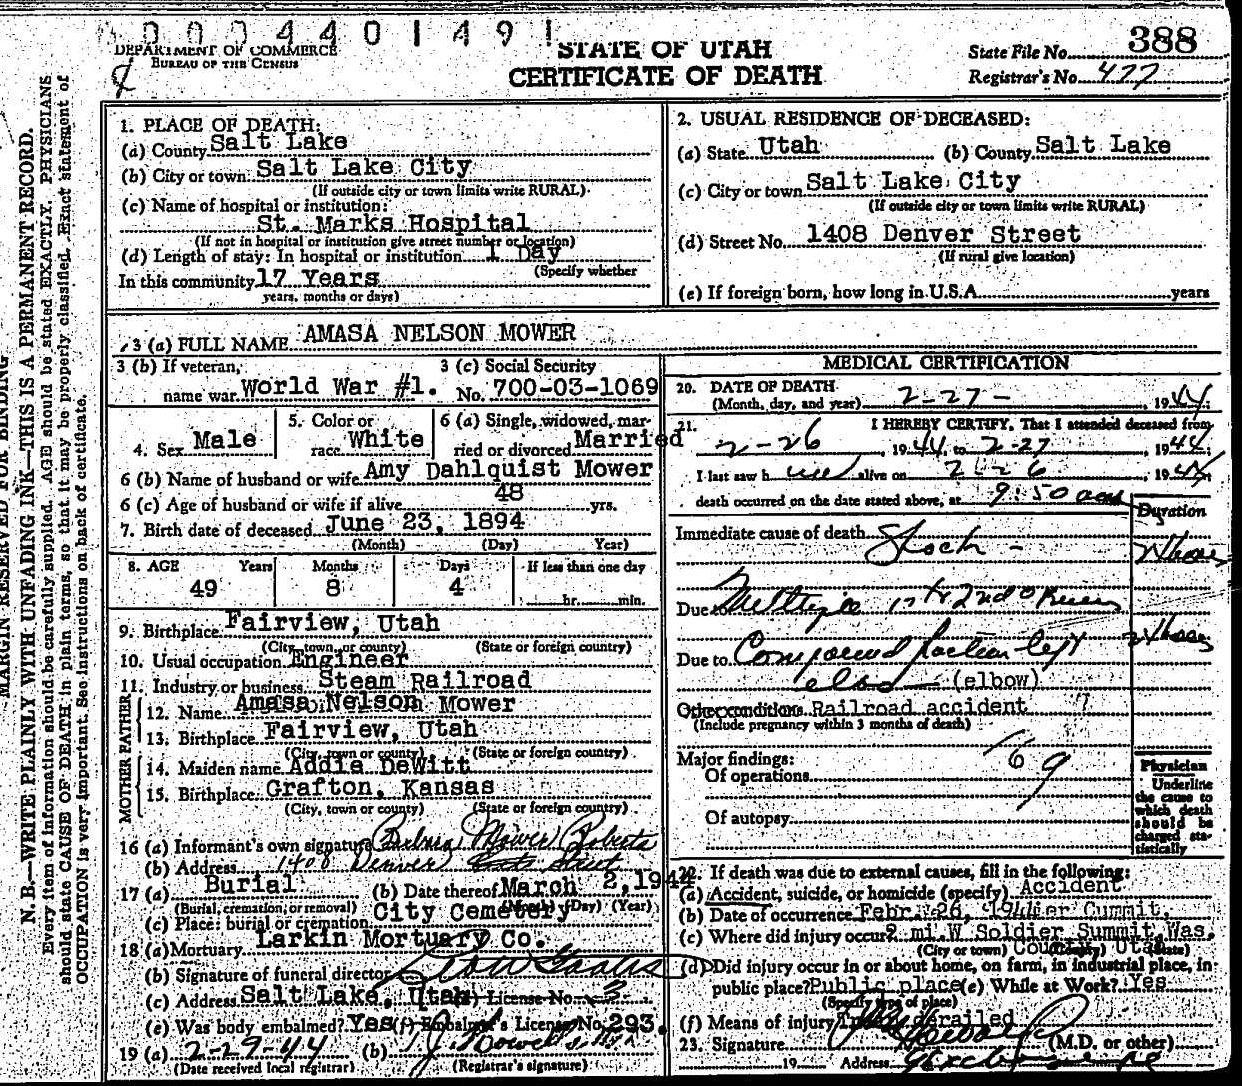 0004401491
DEPARTMENT OF COMMERCE
BUREAU OF THE CENSUS
STATE OF UTAH
CERTIFICATE OF DEATH
State File No. 388
Registrar's No. 477
MARGIN RESERVED FOR BINDING
N. B.—WRITE PLAINLY WITH UNFADING INK—THIS IS A PERMANENT RECORD.
Every item of information should be carefully supplied. AGE should be stated EXACTLY. PHYSICIANS
should state CAUSE OF DEATH in plain terms, so that it may be properly classified. Exact statement of
OCCUPATION is very important. See instructions on back of certificate.
1. PLACE OF DEATH:
(a) County Salt Lake
(b) City or town Salt Lake City
(If outside city or town limits write RURAL)
(c) Name of hospital or institution:
St. Marks Hospital
(If not in hospital or institution give street number or location)
(d) Length of stay: In hospital or institution 1 Day
(Specify whether
In this community 17 Years
years, months or days)
2. USUAL RESIDENCE OF DECEASED:
(a) State Utah (b) County Salt Lake
(c) City or town Salt Lake City
(If outside city or town limits write RURAL)
(d) Street No. 1408 Denver Street
(If rural give location)
(e) If foreign born, how long in U.S.A. years
3 (a) FULL NAME AMASA NELSON MOWER
3 (b) If veteran, 3 (c) Social Security
name war World War #1. No. 700-03-1069
4. Sex Male 5. Color or race White 6 (a) Single, widowed, married or divorced Married
6 (b) Name of husband or wife Amy Dahlquist Mower
6 (c) Age of husband or wife if alive 48 yrs.
7. Birth date of deceased June 23, 1894
(Month) (Day) Year)
8. AGE Years Months Days If less than one day
49 8 4 hr. min.
9. Birthplace Fairview, Utah
(City, town, or county) (State or foreign country)
10. Usual occupation Engineer
11. Industry or business Steam Railroad
FATHER
12. Name Amasa Nelson Mower
13. Birthplace Fairview, Utah
(City, town or county) (State or foreign country)
MOTHER
14. Maiden name Addie DeWitt
15. Birthplace Grafton, Kansas
(City, town or county) (State or foreign country)
16 (a) Informant's own signature Barbara Mower Roberts
(b) Address 1408 Denver Street
17 (a) Burial (b) Date thereof March 2, 1944
(Burial, cremation, or removal) (Month) (Day) (Year)
(c) Place: burial or cremation City Cemetery
18 (a) Mortuary Larkin Mortuary Co.
(b) Signature of funeral director
(c) Address Salt Lake, Utah License No.
(e) Was body embalmed? Yes (f) Embalmer's License No. 293.
19 (a) 2-29-44 (b)
(Date received local registrar) (Registrar's signature)
MEDICAL CERTIFICATION
20. DATE OF DEATH
(Month, day, and year) 2-27-, 1944
21. I HEREBY CERTIFY, That I attended deceased from
2-26, 1944, to 2-27, 1944
I last saw h alive on 2-26, 1944
death occurred on the date stated above, at 9:50 am
Duration
Immediate cause of death Shock - 24 hours
Due to Multiple 1st & 2nd ° Burns
24 hours
Due to Compound fracture left
elbow (elbow)
Other conditions Railroad accident
(Include pregnancy within 3 months of death)
169
Major findings:
Of operations
Of autopsy
Physician
Underline
the cause to
which death
should be
charged sta-
tistically
22. If death was due to external causes, fill in the following:
(a) Accident, suicide, or homicide (specify) Accident
(b) Date of occurrence Febr. 26, 1944
(c) Where did injury occur 2 mi. W Soldier Summit, Was.
(City or town) (County) (State)
County, Utah
(d) Did injury occur in or about home, on farm, in industrial place, in
public place? Public place (e) While at Work? Yes
(Specify type of place)
(f) Means of injury Train derailed
23. Signature (M.D. or other)
19 Address